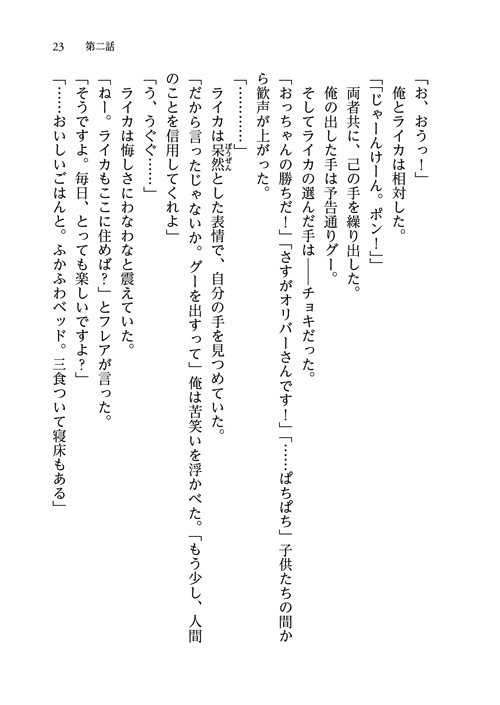 23　第二話
「お、おうっ！」
俺とライカは相対した。
「「じゃーんけーん。ポン！」」
両者共に、己の手を繰り出した。
俺の出した手は予告通りグー。
そしてライカの選んだ手は――チョキだった。
「おっちゃんの勝ちだ！」「さすがオリバーさんです！」「……ぱちぱち」子供たちの間か
ら歓声が上がった。
「…………」
ライカは呆然とした表情で、自分の手を見つめていた。
ぼうぜん
「だから言ったじゃないか。グーを出すって」俺は苦笑いを浮かべた。「もう少し、人間
のことを信用してくれよ」
「う、うぐぐ……」
ライカは悔しさにわなわなと震えていた。
「ねー。ライカもここに住めば？」とフレアが言った。
「そうですよ。毎日、とっても楽しいですよ？」
「……おいしいごはんと。ふかふわベッド。三食ついて寝床もある」